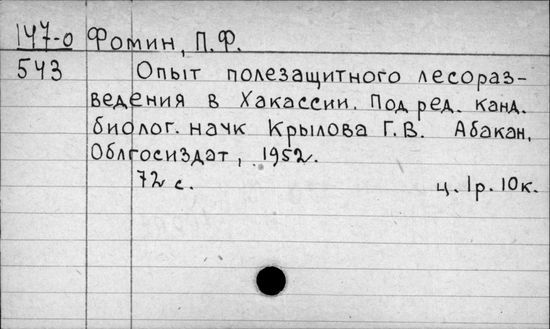 147-о Фомин, П. Ф.
543 Опыт полезащитного лесораз-
ведения в Хакассии. Под ред. канд.
биолог. начк Крылова Г. В. Абакан,
Облгосиздат, 1952.
72 с. ц. 1р. 10к.